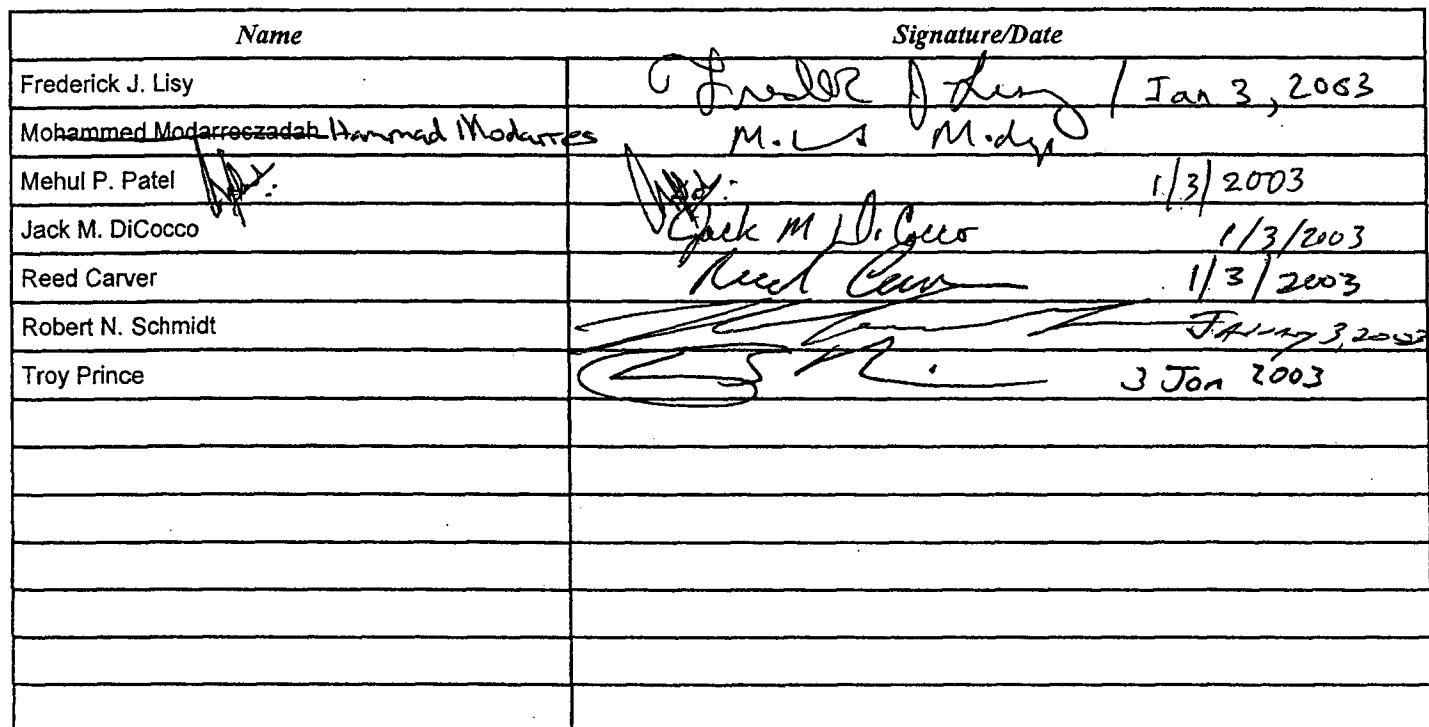 Name Signature/Date
Frederick J. Lisy Fredk J Lisy / Jan 3, 2003
Mohammed Modarreszadah Hammad Modarres
Mehul P. Patel 1/3/2003
Jack M. DiCocco Jack M DiCocco 1/3/2003
Reed Carver Reed Carver 1/3/2003
Robert N. Schmidt January 3, 2003
Troy Prince 3 Jan 2003